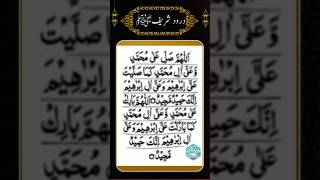 درود شریف ﷺ
اَللّٰهُمَّ صَلِّ عَلٰى مُحَمَّدٍ
وَّعَلٰٓى اٰلِ مُحَمَّدٍ كَمَا صَلَّيْتَ
عَلٰٓى اِبْرٰهِيْمَ وَعَلٰٓى اٰلِ اِبْرٰهِيْمَ
اِنَّكَ حَمِيْدٌ مَّجِيْدٌ ۝ اَللّٰهُمَّ بَارِكْ
عَلٰى مُحَمَّدٍ وَّعَلٰٓى اٰلِ مُحَمَّدٍ
كَمَا بَارَكْتَ عَلٰٓى اِبْرٰهِيْمَ وَعَلٰٓى
اٰلِ اِبْرٰهِيْمَ اِنَّكَ حَمِيْدٌ
مَّجِيْدٌ ۝